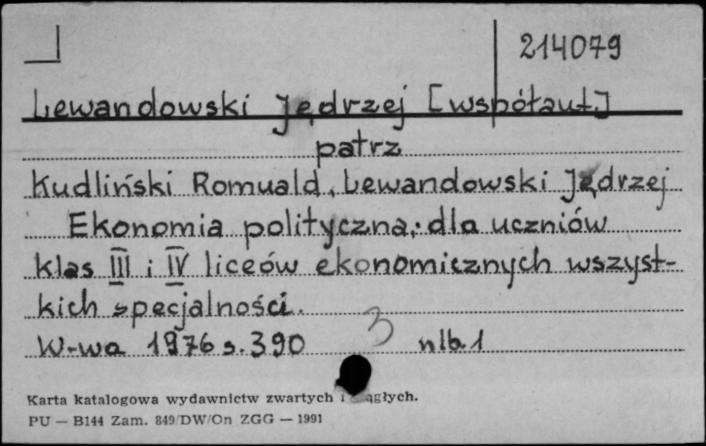 214079
Lewandowski Jędrzej [współaut.]
patrz
Kudliński Romuald, Lewandowski Jędrzej
Ekonomia polityczna: dla uczniów
klas III i IV liceów ekonomicznych wszyst-
kich specjalności.
W-wa 1976 s. 390 3 nlb. 1
Karta katalogowa wydawnictw zwartych i
PU — B144 Zam. 849/DW/On ZGG — 1991